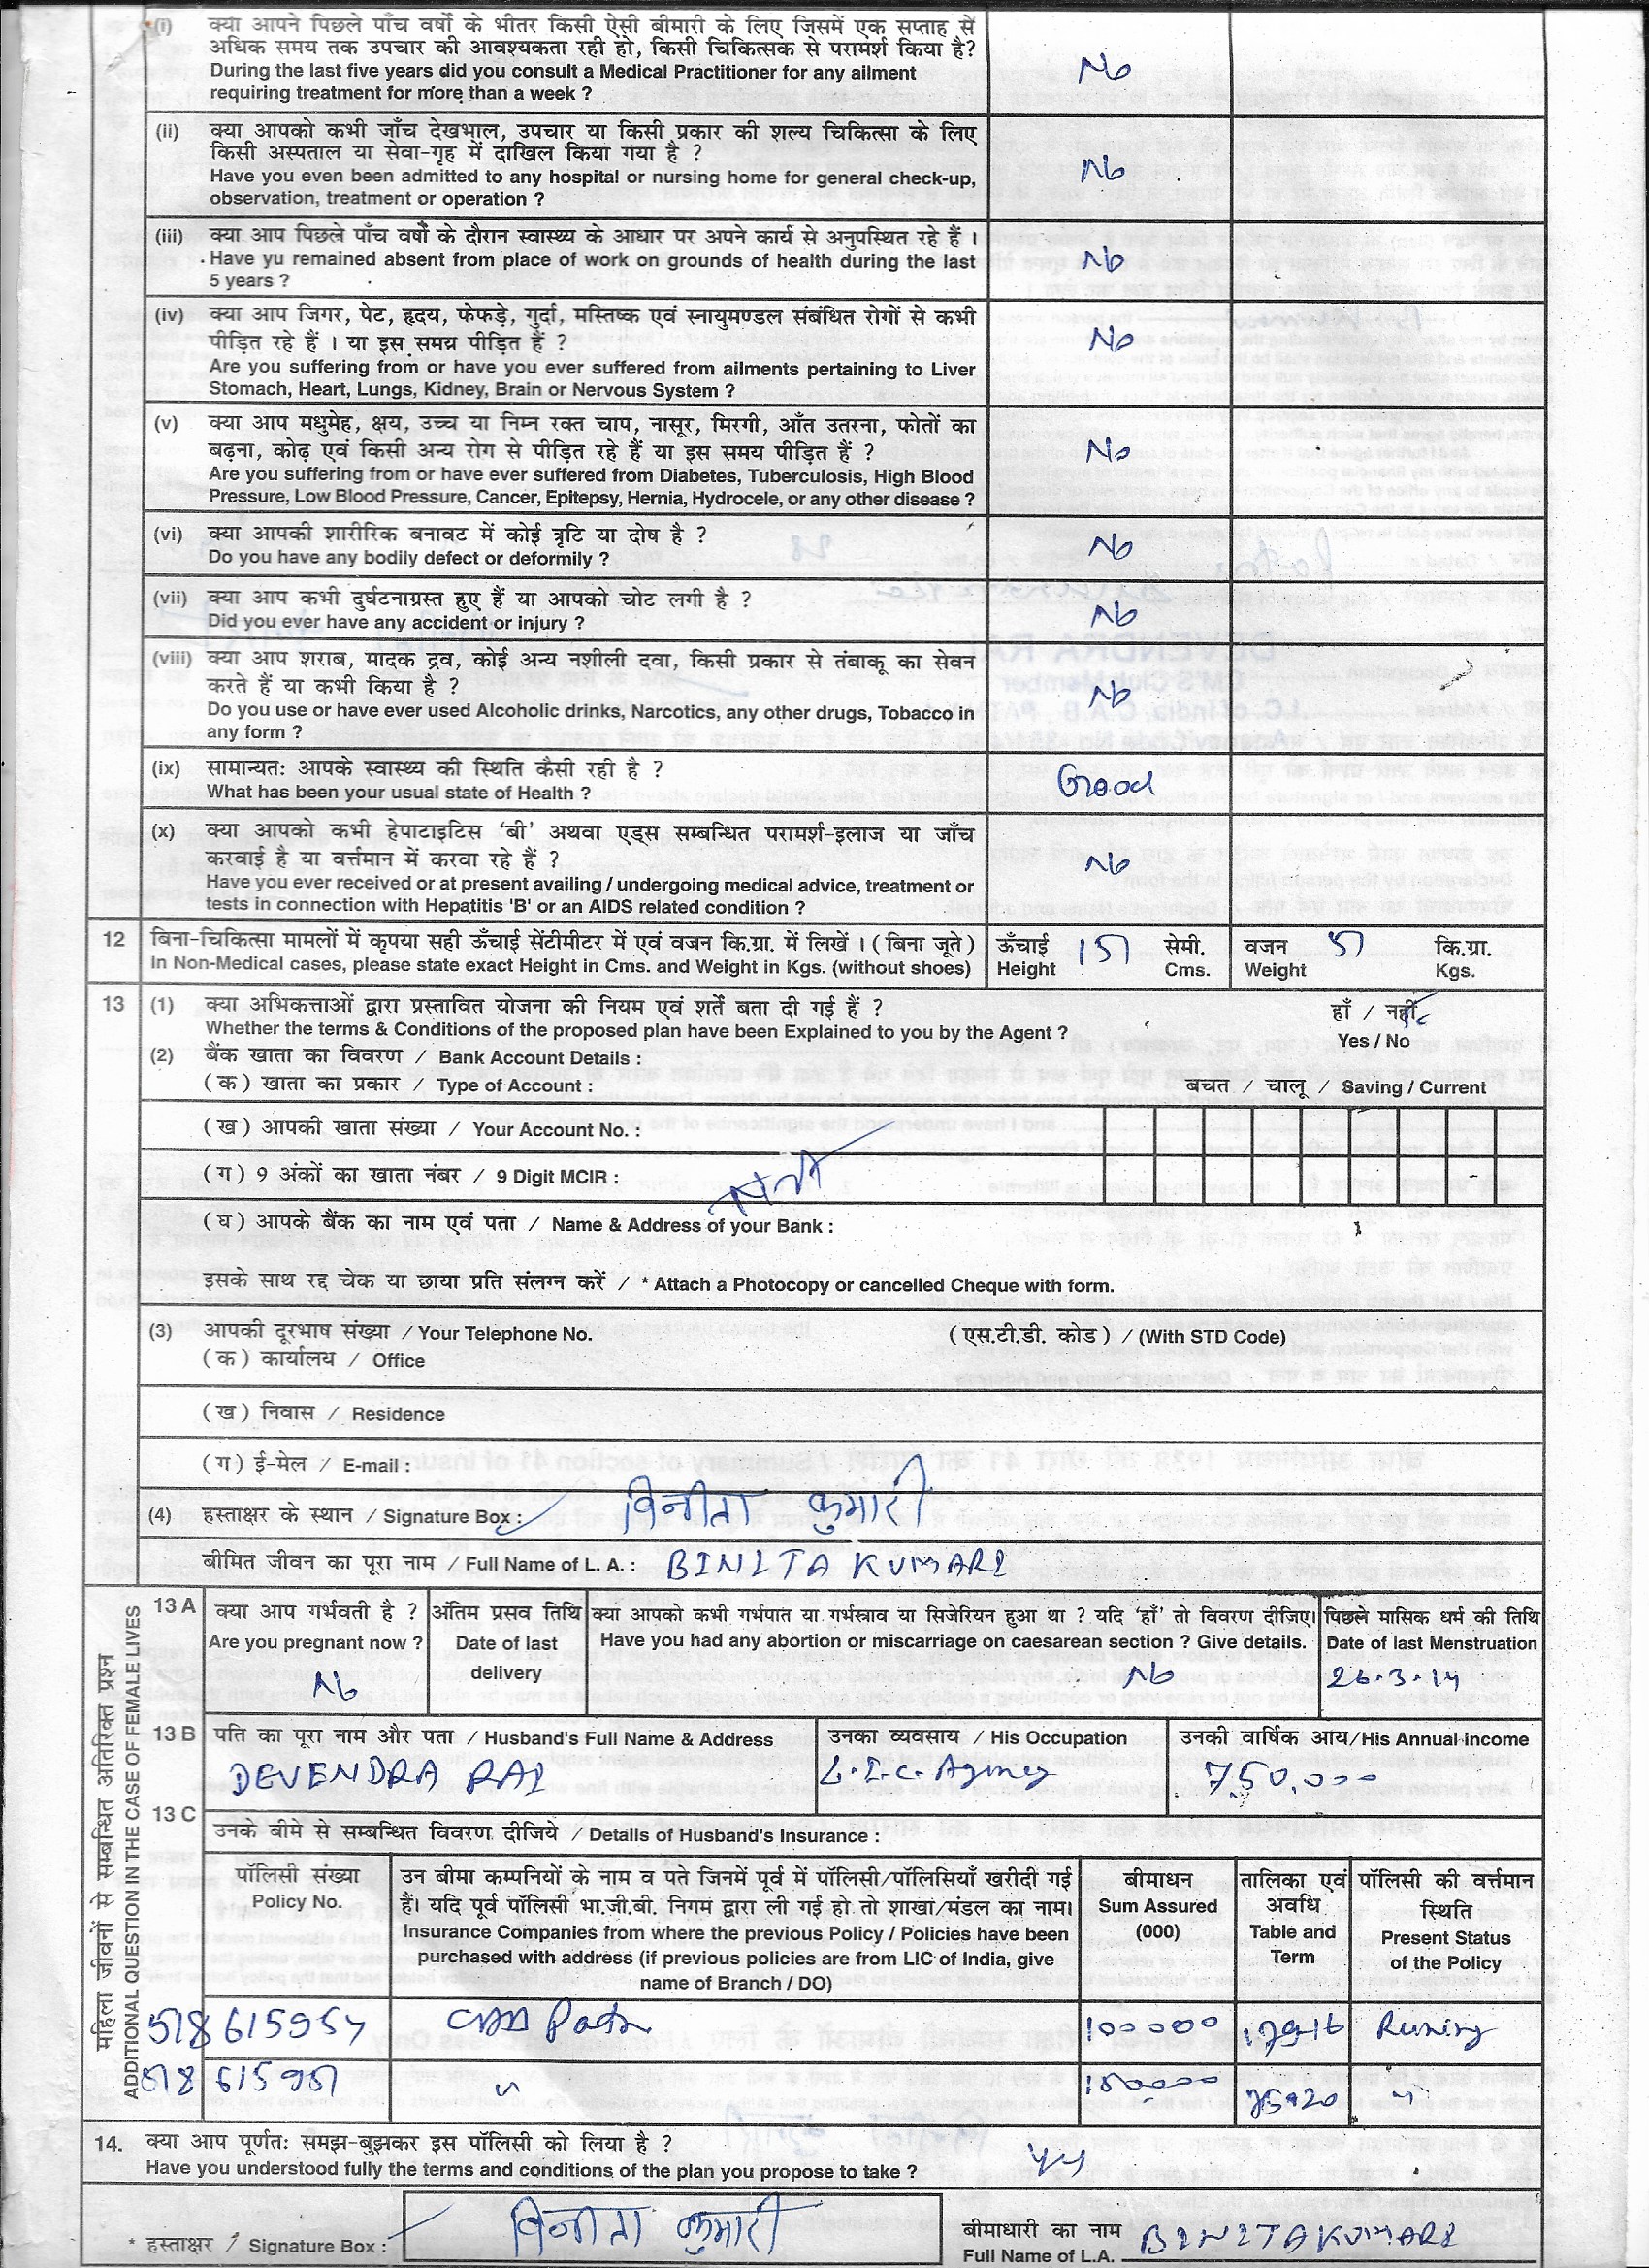 (i) क्या आपने पिछले पाँच वर्षो के भीतर किसी ऐसी बीमारी के लिए जिसमें एक सप्ताह से
अधिक समय तक उपचार की आवश्यकता रही हो, किसी चिकित्सक से परामर्श किया है?
During the last five years did you consult a Medical Practitioner for any ailment
requiring treatment for more than a week ?
No
(ii) क्या आपको कभी जाँच देखभाल, उपचार या किसी प्रकार की शल्य चिकित्सा के लिए
किसी अस्पताल या सेवा-गृह में दाखिल किया गया है ?
Have you even been admitted to any hospital or nursing home for general check-up,
observation, treatment or operation ?
No
(iii) क्या आप पिछले पाँच वर्षो के दौरान स्वास्थ्य के आधार पर अपने कार्य से अनुपस्थित रहे हैं ।
Have yu remained absent from place of work on grounds of health during the last
5 years ?
No
(iv) क्या आप जिगर, पेट, हृदय, फेफड़े, गुर्दा, मस्तिष्क एवं स्नायुमण्डल संबंधित रोगों से कभी
पीड़ित रहे हैं । या इस समय पीड़ित हैं ?
Are you suffering from or have you ever suffered from ailments pertaining to Liver
Stomach, Heart, Lungs, Kidney, Brain or Nervous System ?
No
(v) क्या आप मधुमेह, क्षय, उच्च या निम्न रक्त चाप, नासूर, मिरगी, आँत उतरना, फोतों का
बढ़ना, कोढ़ एवं किसी अन्य रोग से पीड़ित रहे हैं या इस समय पीड़ित हैं ?
Are you suffering from or have ever suffered from Diabetes, Tuberculosis, High Blood
Pressure, Low Blood Pressure, Cancer, Epitepsy, Hernia, Hydrocele, or any other disease ?
No
(vi) क्या आपकी शारीरिक बनावट में कोई त्रृटि या दोष है ?
Do you have any bodily defect or deformily ?
No
(vii) क्या आप कभी दुर्घटनाग्रस्त हुए हैं या आपको चोट लगी है ?
Did you ever have any accident or injury ?
No
(viii) क्या आप शराब, मादक द्रव, कोई अन्य नशीली दवा, किसी प्रकार से तंबाकू का सेवन
करते हैं या कभी किया है ?
Do you use or have ever used Alcoholic drinks, Narcotics, any other drugs, Tobacco in
any form ?
No
(ix) सामान्यतः आपके स्वास्थ्य की स्थिति कैसी रही है ?
What has been your usual state of Health ?
Good
(x) क्या आपको कभी हेपाटाइटिस 'बी' अथवा एड्स सम्बन्धित परामर्श-इलाज या जाँच
करवाई है या वर्त्तमान में करवा रहे हैं ?
Have you ever received or at present availing / undergoing medical advice, treatment or
tests in connection with Hepatitis 'B' or an AIDS related condition ?
No
12 बिना-चिकित्सा मामलों में कृपया सही ऊँचाई सेंटीमीटर में एवं वजन कि.ग्रा. में लिखें । ( बिना जूते ) ऊँचाई 151 सेमी. वजन 51 कि.ग्रा.
In Non-Medical cases, please state exact Height in Cms. and Weight in Kgs. (without shoes) Height Cms. Weight Kgs.
13 (1) क्या अभिकत्ताओं द्वारा प्रस्तावित योजना की नियम एवं शर्तें बता दी गई हैं ? हाँ / नहीं
Whether the terms & Conditions of the proposed plan have been Explained to you by the Agent ? Yes / No
(2) बैंक खाता का विवरण / Bank Account Details :
(क) खाता का प्रकार / Type of Account : बचत / चालू / Saving / Current
(ख) आपकी खाता संख्या / Your Account No. :
(ग) 9 अंकों का खाता नंबर / 9 Digit MCIR :
(घ) आपके बैंक का नाम एवं पता / Name & Address of your Bank :
इसके साथ रद्द चेक या छाया प्रति संलग्न करें / * Attach a Photocopy or cancelled Cheque with form.
(3) आपकी दूरभाष संख्या / Your Telephone No. (एस.टी.डी. कोड) / (With STD Code)
(क) कार्यालय / Office
(ख) निवास / Residence
(ग) ई-मेल / E-mail :
(4) हस्ताक्षर के स्थान / Signature Box : विनीता कुमारी
बीमित जीवन का पूरा नाम / Full Name of L. A. : BINITA KUMARI
महिला जीवनों से सम्बन्धित अतिरिक्त प्रश्न
ADDITIONAL QUESTION IN THE CASE OF FEMALE LIVES
13 A क्या आप गर्भवती है ? अंतिम प्रसव तिथि क्या आपको कभी गर्भपात या गर्भस्राव या सिजेरियन हुआ था ? यदि 'हाँ' तो विवरण दीजिए। पिछले मासिक धर्म की तिथि
Are you pregnant now ? Date of last Have you had any abortion or miscarriage on caesarean section ? Give details. Date of last Menstruation
delivery
No No 26.3.14
13 B पति का पूरा नाम और पता / Husband's Full Name & Address उनका व्यवसाय / His Occupation उनकी वार्षिक आय/His Annual income
DEVENDRA RAI L.I.C. Agency 750,000
13 C
उनके बीमे से सम्बन्धित विवरण दीजिये / Details of Husband's Insurance :
पॉलिसी संख्या उन बीमा कम्पनियों के नाम व पते जिनमें पूर्व में पॉलिसी/पॉलिसियाँ खरीदी गई बीमाधन तालिका एवं पॉलिसी की वर्त्तमान
Policy No. हैं। यदि पूर्व पॉलिसी भा.जी.बी. निगम द्वारा ली गई हो तो शाखा/मंडल का नाम। Sum Assured अवधि स्थिति
Insurance Companies from where the previous Policy / Policies have been (000) Table and Present Status
purchased with address (if previous policies are from LIC of India, give Term of the Policy
name of Branch / DO)
518615957 100000 179-16 Runing
518615951 " 100000 75-20 "
14. क्या आप पूर्णतः समझ-बुझकर इस पॉलिसी को लिया है ?
Have you understood fully the terms and conditions of the plan you propose to take ?
* हस्ताक्षर / Signature Box : विनीता कुमारी
बीमाधारी का नाम
Full Name of L.A. BINITA KUMARI